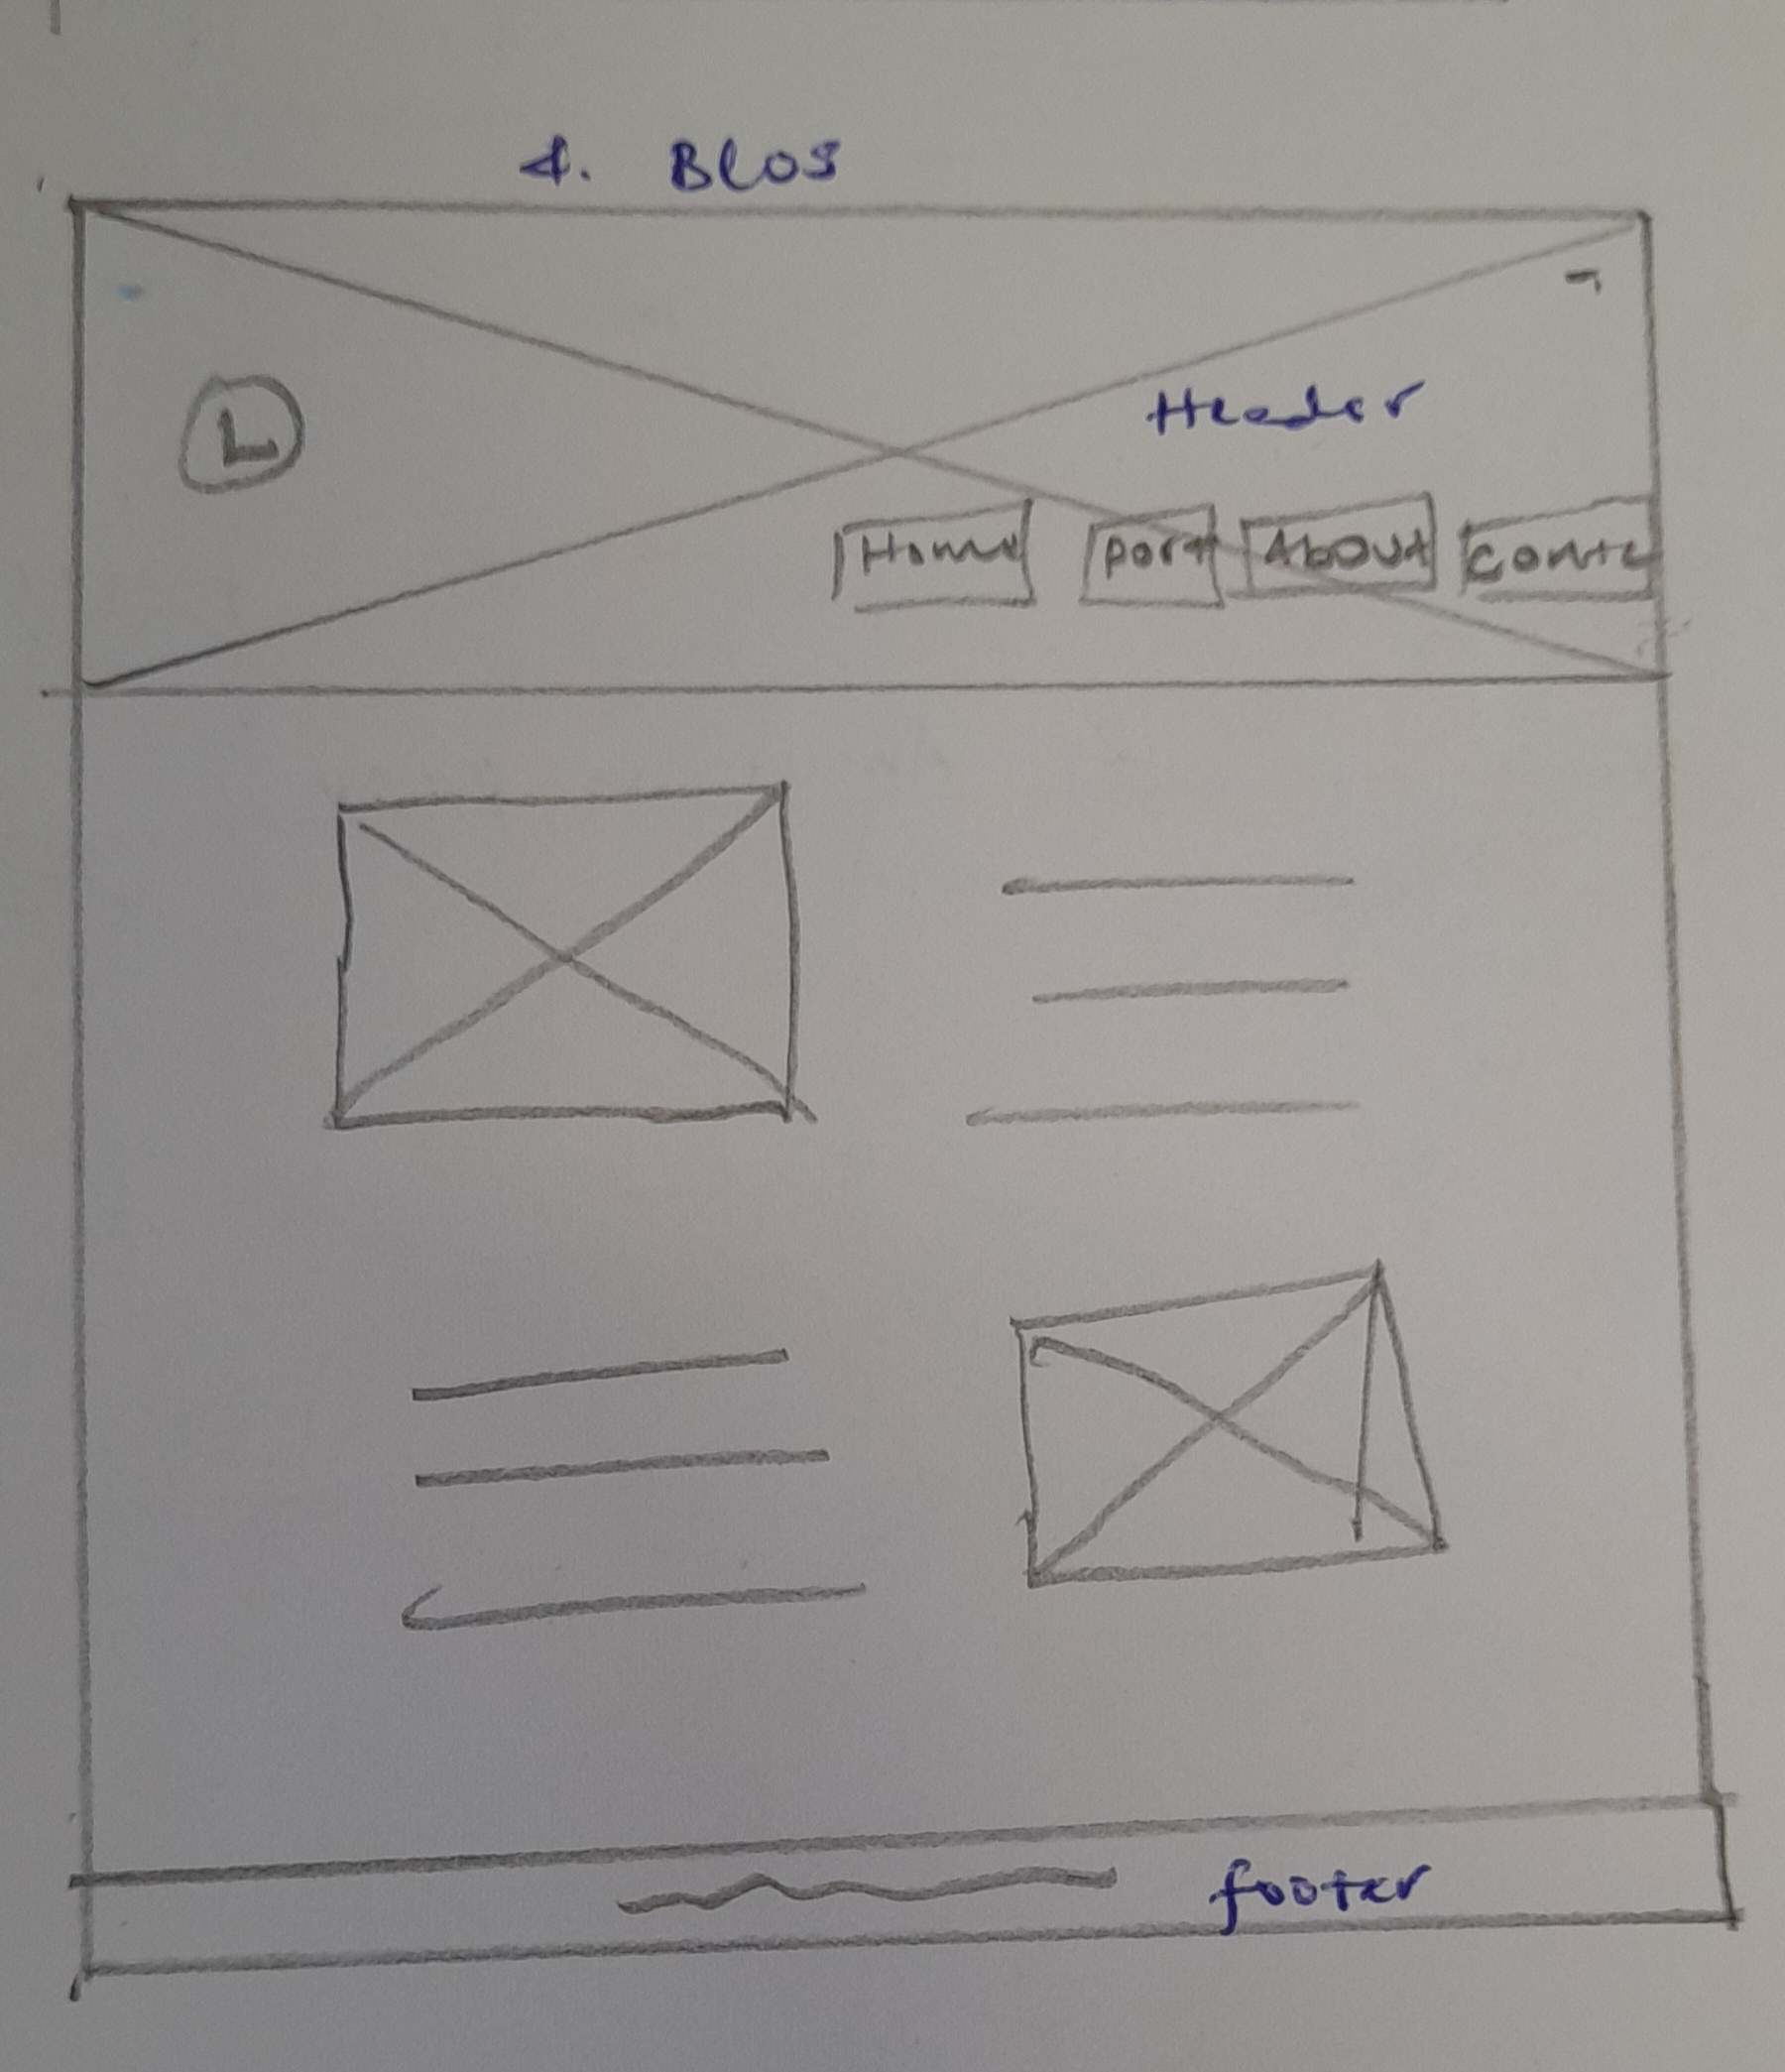 4. Blog
L
Header
Home Port About Conta
footer